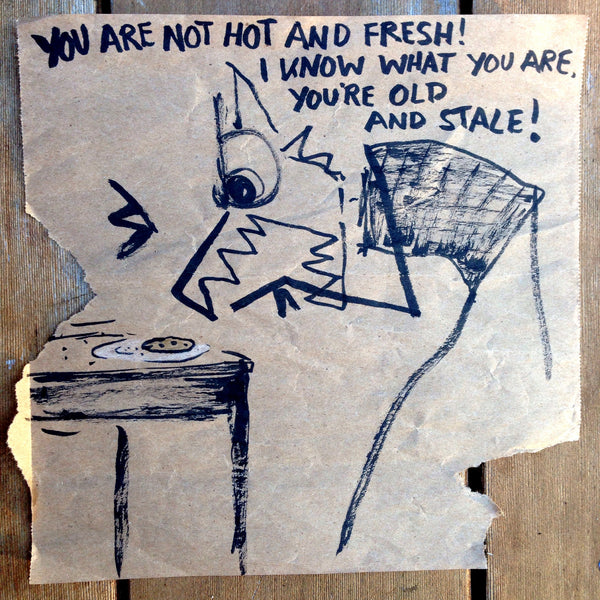 YOU ARE NOT HOT AND FRESH!
I KNOW WHAT YOU ARE,
YOU'RE OLD
AND STALE!